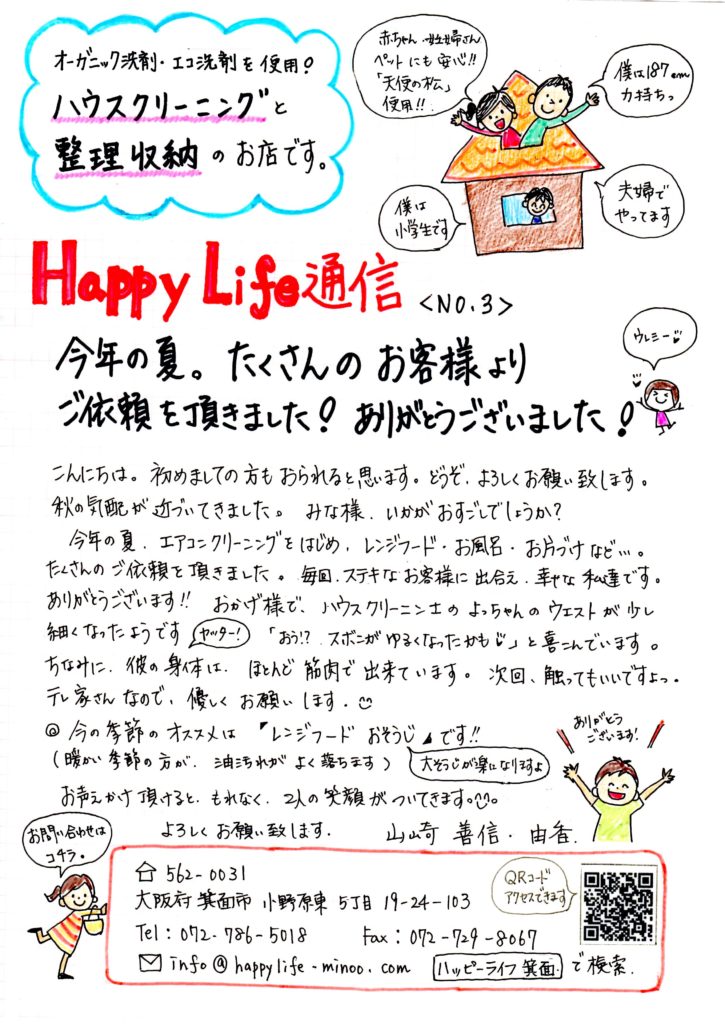 オーガニック洗剤・エコ洗剤を使用?
ハウスクリーニングと
整理収納のお店です。
赤ちゃん、妊婦さん
ペットにも安心!!
「天使の松」
使用!!
僕は187cm
力持ちっ
僕は
小学生です
夫婦で
やってます
Happy Life通信 <NO.3>
今年の夏。たくさんのお客様より
ご依頼を頂きました!ありがとうございました!
ウレシー♥
こんにちは。初めましての方もおられると思います。どうぞ、よろしくお願い致します。
秋の気配が近づいてきました。みな様、いかがおすごしでしょうか?
今年の夏、エアコンクリーニングをはじめ、レンジフード・お風呂・お片づけなど…。
たくさんのご依頼を頂きました。毎回、ステキなお客様に出合え、幸せな私達です。
ありがとうございます!! おかげ様で、ハウスクリーニン士のよっちゃんのウエストが少し
細くなったようです ヤッター! 「おう!?ズボンがゆるくなったかも♥」と喜こんでいます。
ちなみに、彼の身体は、ほとんど筋肉で出来ています。次回、触ってもいいですよっ。
テレ家さんなので、優しくお願いします。☺
◎今の季節のオススメは『レンジフードおそうじ』です!!
(暖かい季節の方が、油汚れがよく落ちます) 大そうじが楽になりますよ
ありがとう
ございます!
お声かけ頂けると、もれなく、2人の笑顔がついてきます。
よろしくお願い致します。 山崎 善信・由香.
お問い合わせは
コチラ。
562-0031
大阪府箕面市小野原東5丁目19-24-103
Tel:072-786-5018 Fax:072-729-8067
info@happylife-minoo.com ハッピーライフ 箕面 で検索.
QRコード
アクセスできます